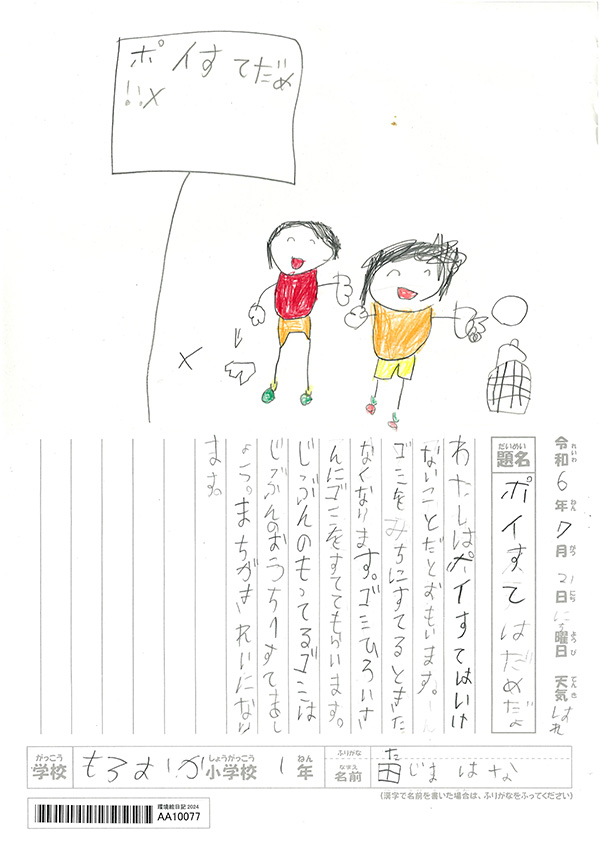 ポイすてだめ
!!×
×
令和6年7月21日にち曜日 天気はれ
れいわ ねん がつ にち ようび てんき
だいめい
題名
ポイすてはだめだよ
わたしはポイすてはいけ
ないことだとおもいます。
ゴミをみちにすてるときた
なくなります。ゴミひろいさ
んにゴミをすててもらいます。
じぶんのもってるゴミは
じぶんのおうちですてまし
ょう。まちがきれいになり
ます。
がっこう しょうがっこう ねん ふりがな た
学校 もろおか小学校 1年 なまえ 名前 田じまはな
(漢字で名前を書いた場合は、ふりがなをふってください)
環境絵日記2024
AA10077